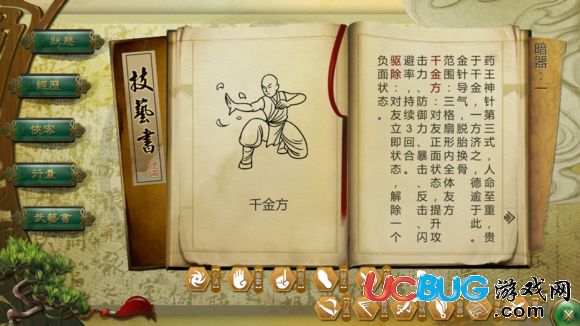 狀態
經歷
俠客
行囊
武藝書
技藝書
千金方
暗器：一
药王神针第三式，人命至重，贵
于千金，一方济之，德逾于此。
金针导气，脱胎换骨
范围：三格扇形内全体友方
千金方：对友正面状态，提升攻
击力、防御力、暴击、反击、闪
避率，持续3回合。
驱除：对友立即状态，解除一个
负面状态。
UCBUG游戏网
.com